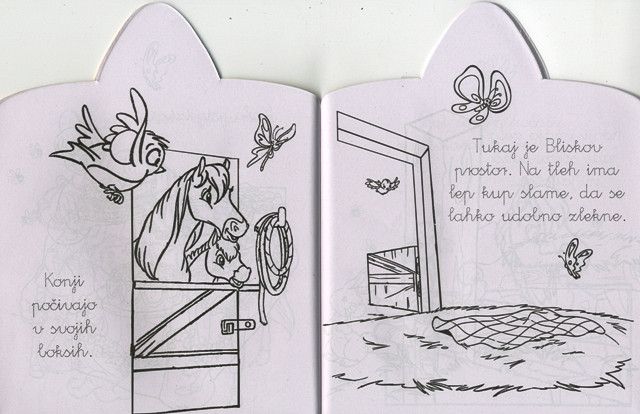 Konji
počivajo
v svojih
boksih.
Tukaj je Bliskov
prostor. Na tleh ima
lep kup slame, da se
lahko udobno zlekne.